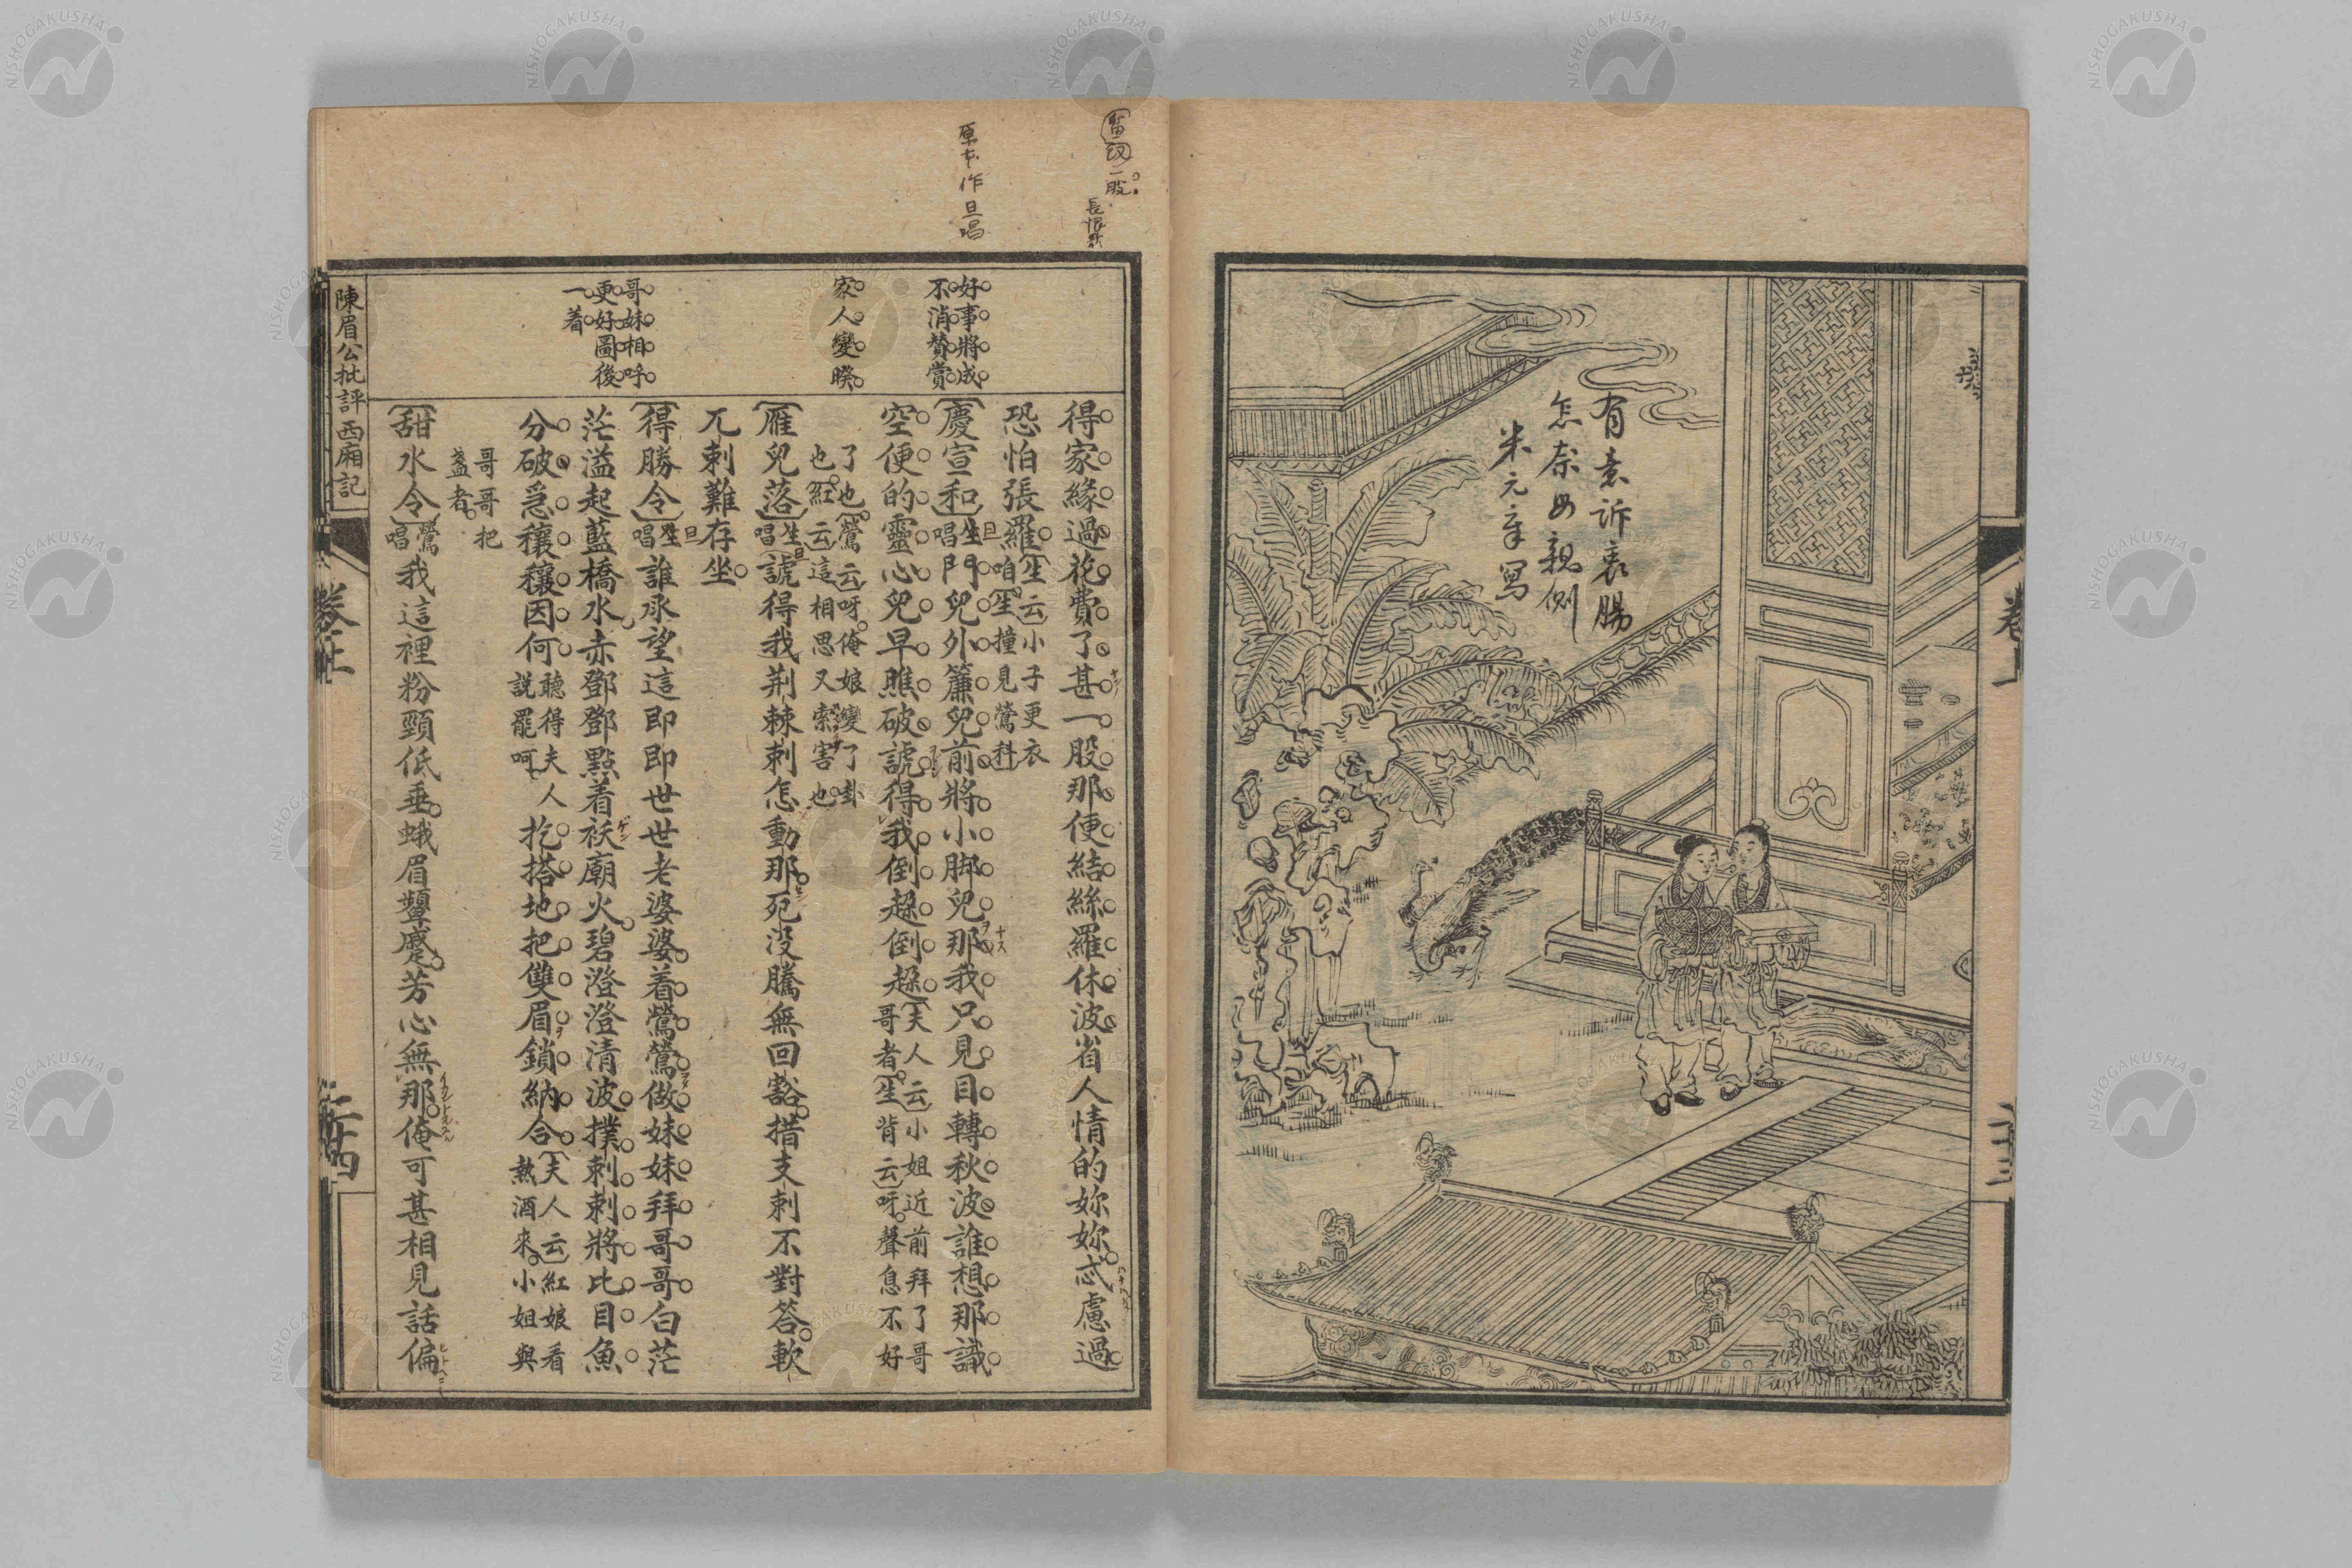 有意訴衷腸
怎奈母親側
米元章寫
卷上
二十三
釵留一股
長恨歌
原本作旦唱
好事將成
不消贊賞
家人變睽
哥妹相呼
更好圖後
一着
得家緣過花費了甚一股那便結絲羅休波省人情的妳妳忒慮過
恐怕張羅〔生云〕小子更衣咱〔生撞見鶯科〕
〔慶宣和〕〔生唱〕門兒外簾兒前將小脚兒那我只見目轉秋波誰想那識
空便的靈心兒早瞧破諕得我倒趓倒趓〔夫人云〕小姐近前拜了哥哥者〔生背云〕呀聲息不好
了也〔鶯云〕呀俺娘變了卦也〔紅云〕這相思又索害也
〔雁兒落〕〔生唱〕諕得我荆棘刺怎動那死没騰無回豁措支剌不對答軟
兀剌難存坐
〔得勝令〕〔生唱〕誰承望這即即世世老婆婆着鶯鶯做妹妹拜哥哥白茫
茫溢起藍橋水赤鄧鄧點着祅廟火碧澄澄清波撲剌剌將比目魚
分破急穰穰因何聽得夫人說罷呵扢搭地把雙眉鎖納合〔夫人云〕紅娘看熱酒來小姐與
哥哥把盞者
〔甜水令〕〔鶯唱〕我這裡粉頸低垂蛾眉顰蹙芳心無那俺可甚相見話偏
陳眉公批評西廂記
卷上
二十四
NISHOGAKUSHA